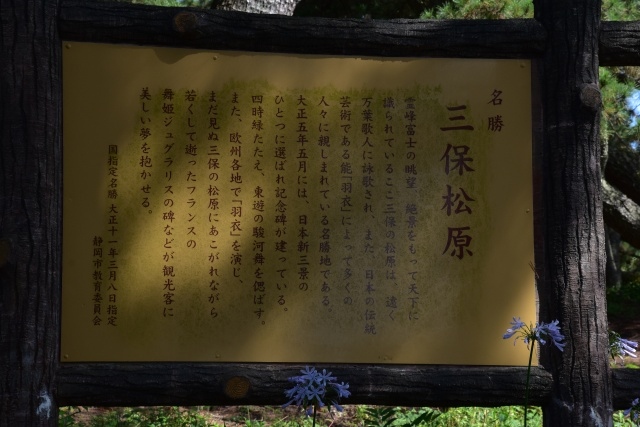 名勝
三保松原
霊峰富士の眺望、絶景をもって天下に
識られているここ三保の松原は、遠く
万葉歌人に詠歌され、また、日本の伝統
芸術である能「羽衣」によって多くの
人々に親しまれている名勝地である。
大正五年五月には、日本新三景の
ひとつに選ばれ記念碑が建っている。
四時緑たたえ、東遊の駿河舞を偲ばす。
また、欧州各地で「羽衣」を演じ、
まだ見ぬ三保の松原にあこがれながら
若くして逝ったフランスの
舞姫ジュグラリスの碑などが観光客に
美しい夢を抱かせる。
国指定名勝 大正十一年三月八日指定
静岡市教育委員会